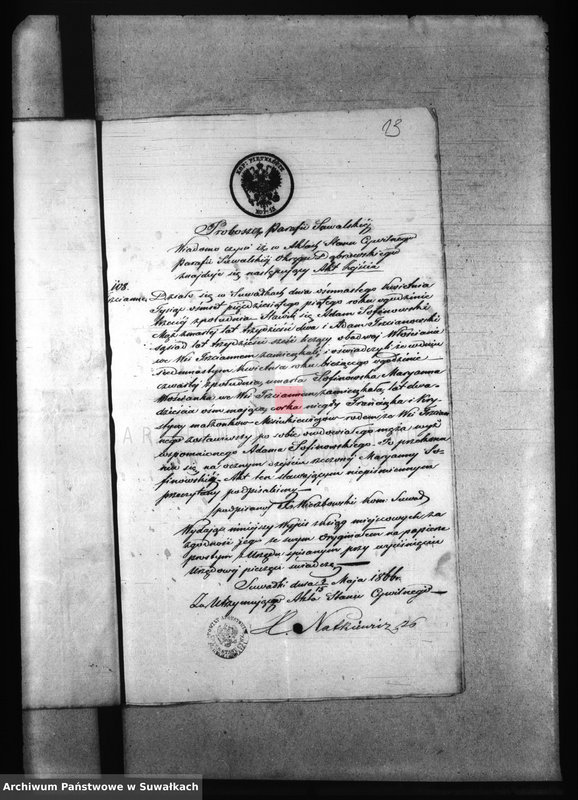 13
Proboszcz Parafii Suwalskiej
Wiadomo czyni iż w Aktach Stanu Cywilnego
Parafii Suwalskiej Okręgu Dąbrowskiego
znajduje się następujący Akt Zejścia
108.
Działo się w Suwałkach dnia ośmnastego Kwietnia
tysiąc ośmset pięćdziesiątego piątego roku o godzinie
trzeciej z południa. Stawili się Adam Sofinowski
Mąż zmarłej lat trzydzieści dwa i Adam
sąsiad lat trzydzieści sześć liczący obadwaj Włościanie
we Wsi zamieszkali, i oświadczyli że w dniu
siedmnastym kwietnia roku bieżącego o godzinie
czwartej z południa, umarła Sofinowska Maryanna
Włościanka we Wsi zamieszkała, lat dwa-
dzieścia ośm mająca, córka niegdy Franciszka i Kry-
styny małżonków rodem ze Wsi
zostawiwszy po sobie owdowiałego męża wyż
wspomnionego Adama Sofinowskiego. Po przekona-
niu się na ocznem o zejściu rzeczonej Maryanny So-
finowskiej. Akt ten stawającym niepiśmiennym
przeczytany podpisaliśmy
podpisany X. Kom. Suwał
Wydając niniejszy Wypis z ksiąg miejscowych za
zgodność jego ze swym Oryginałem na papierze
prostym z Urzędu spisanym przy wyciśnięciu
Urzędowej pieczęci świadczę
Suwałki dnia 3/15 Maja 1866 r.
Za Utrzymującego Akta Stanu Cywilnego
X. Natkiewicz
Archiwum Państwowe w Suwałkach